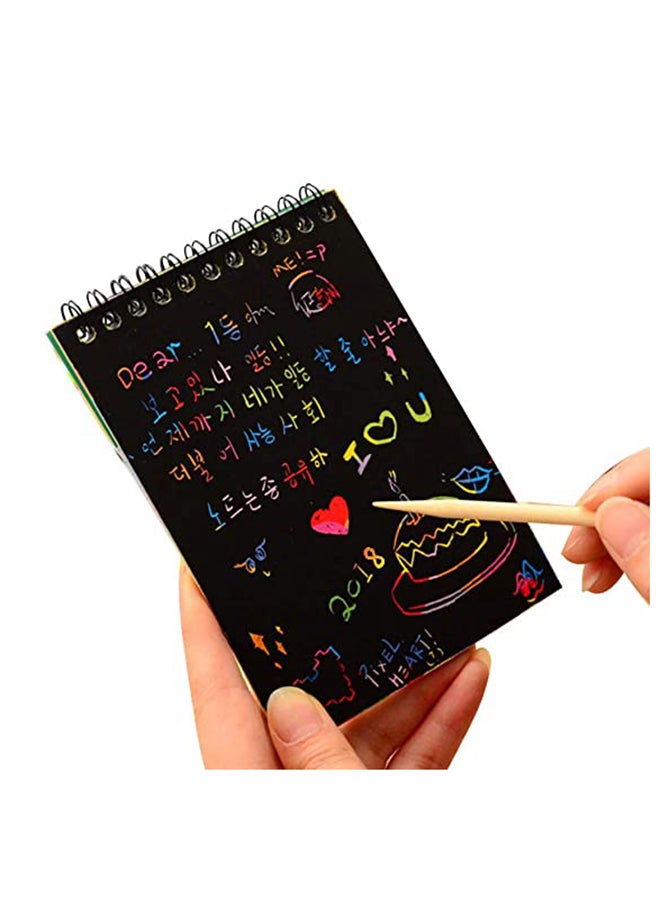 ME!=P
Dear... 1등
보고있나 일등!!
언제까지 네가 일등 할 줄 아냐~
더불어 사는 사회
노트는 좀 공유하
I ♡ U
2018
PIXEL
HEART!